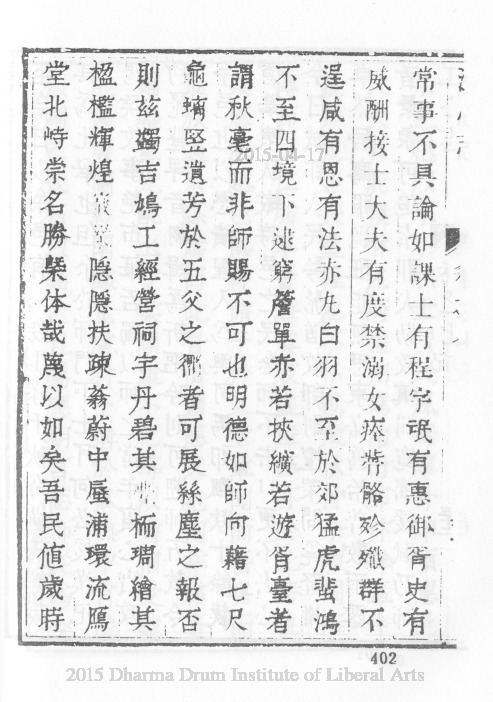 常事不具論如課士有程字氓有惠御胥史有
威酬接士大夫有度禁溺女瘞胔骼殄殲群不
逞咸有恩有法赤丸白羽不至於郊猛虎蜚鴻
不至四境下逮窮簷單赤若挾纊若遊胥臺者
謂秋毫而非師賜不可也明德如師何藉七尺
龜螭豎遺芳於五父之衢者可展絲塵之報否
則茲蠲吉鳩工經營祠宇丹碧其 桷琱繪其
楹檻輝煌 隱隱扶疎蓊蔚中蜃浦環流鴈
堂北峙崇名勝槩体哉蔑以如矣吾民值歲時
402
2015-04-17
2015 Dharma Drum Institute of Liberal Arts